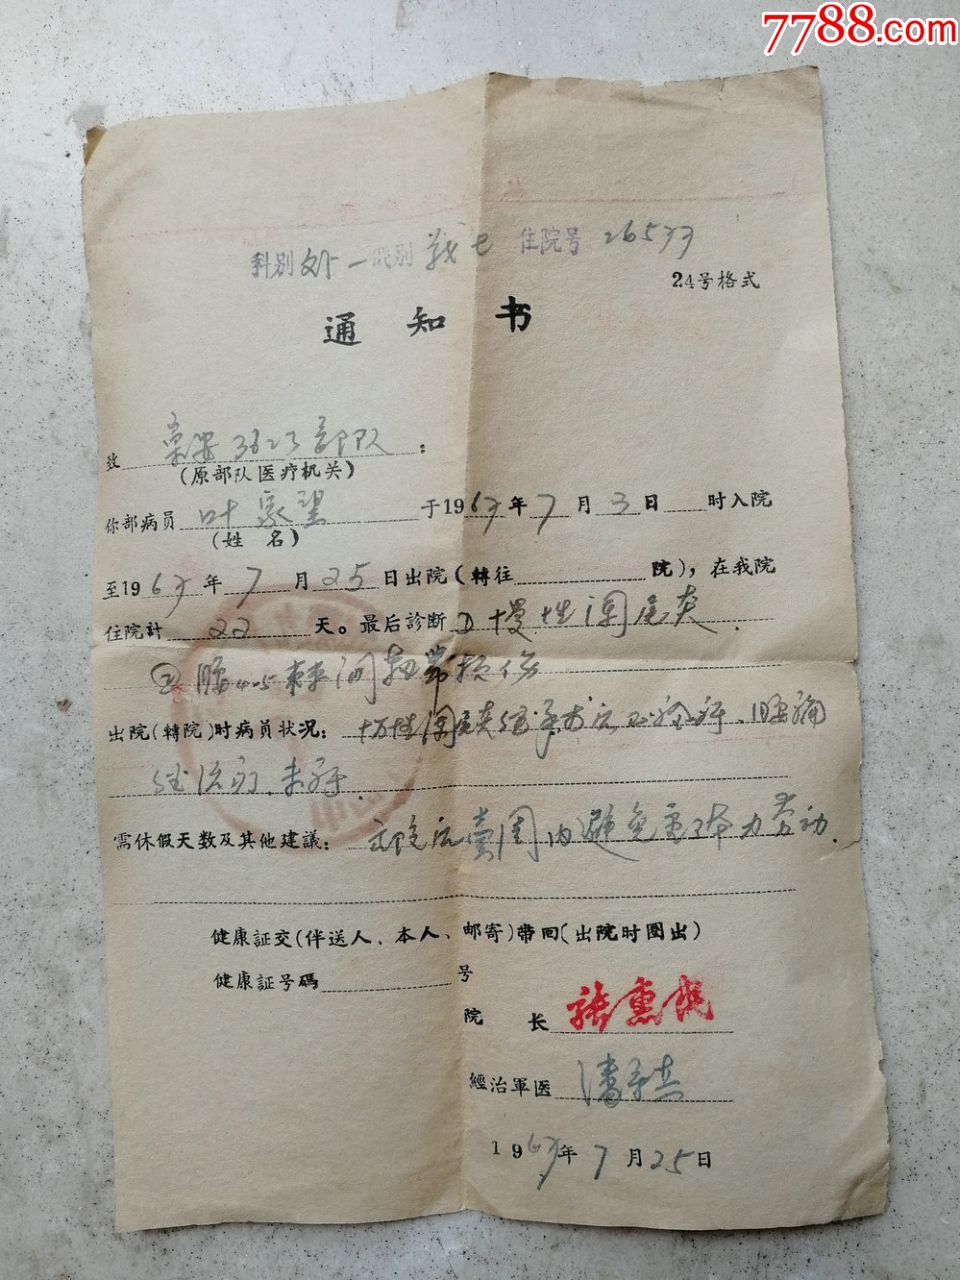 7788.com
科别 外一 战士 住院号 265
24号格式
通知书
致 部队：
(原部队医疗机关)
你部病员 叶家望 于196 年7月3日 时入院
(姓 名)
至196 年7月25日出院(轉往 院)，在我院
住院計 22 天。最后診断 ①慢性阑尾炎．
② 腰4-5棘间韧带损伤
出院(轉院)时病员状况： 慢性阑尾炎 腰痛
需休假天数及其他建議： 出院后壹周内避免重体力劳动．
健康証交(伴送人、本人、邮寄)带回(出院时圈出)
健康証号碼 号
院 长 張
經治軍医 潘
196 年7月25日